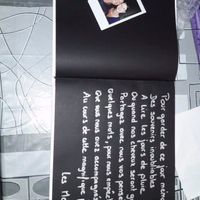 Pour garder de ce jour mém
Des souvenirs inoubliables
A lire les jours de pluie
Ou quand nos cheveux seront g
Partagez avec nous vos pensé
Quelques mots, pour nous
Que vous nous avez accompagnés
Au cours de cette magnifique
Les